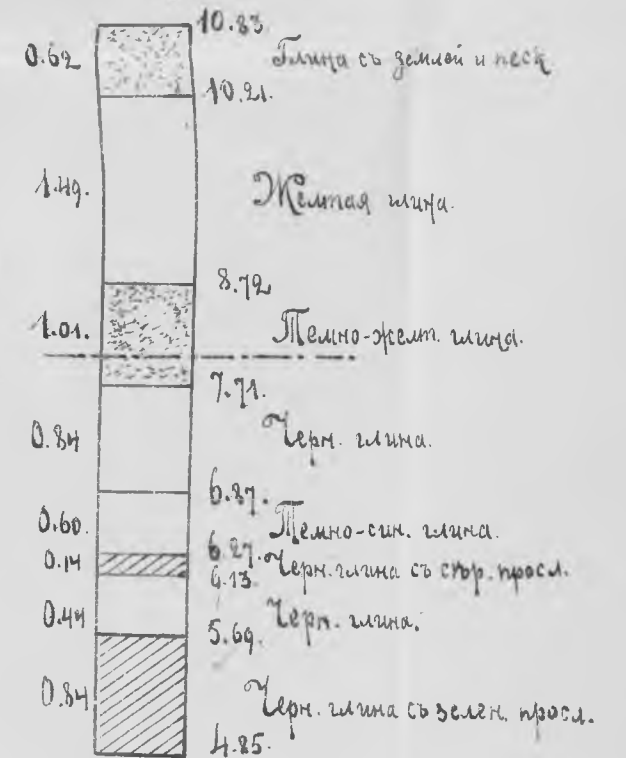 10.83
0.62 Глина съ землей и песк
10.21.
1.49. Желтая глина.
8.72
1.01. Темно-желт. глина.
7.71.
0.84 Черн. глина.
6.87.
0.60. Темно-син. глина.
6.27.
0.14 Черн. глина съ сѣр. просл.
6.13.
0.44 Черн. глина.
5.69.
0.84 Черн. глина съ зелен. просл.
4.85.